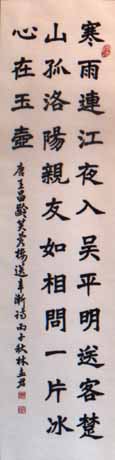 寒雨連江夜入吴平明送客楚
山孤洛陽親友如相問一片冰
心在玉壺
唐王昌齡芙蓉樓送辛漸詩丙子秋林